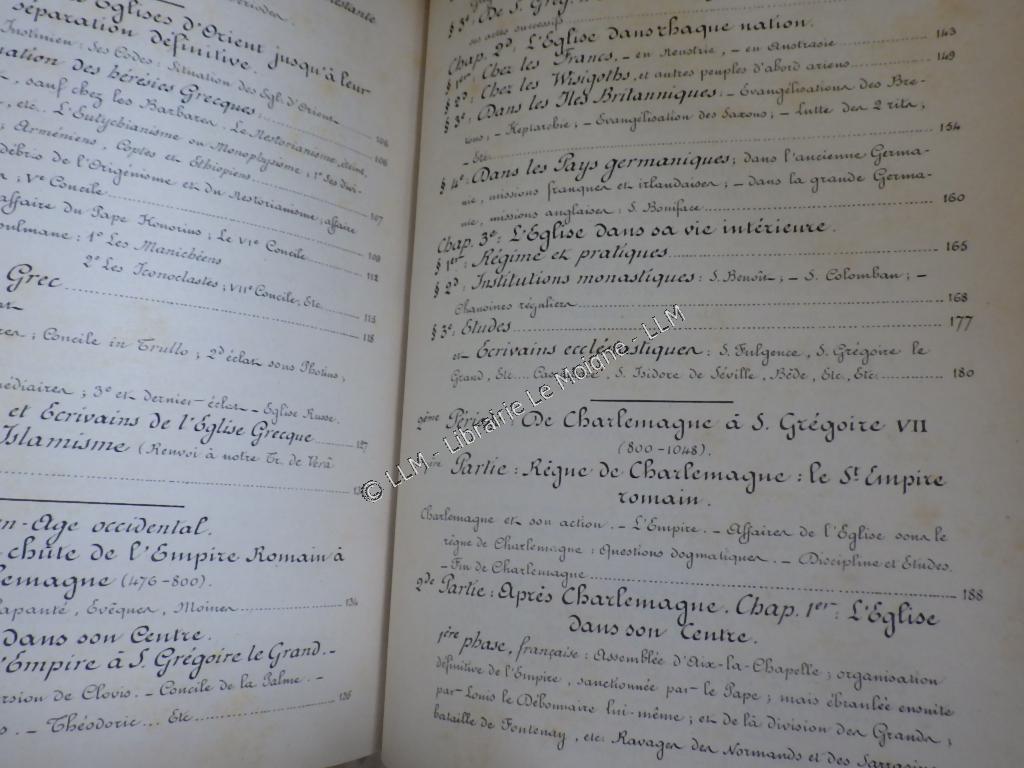 Eglises d'Orient jusqu'à leur
séparation définitive.
Justinien: Ses Codes: Situation des Egl. d'Orient 106
des hérésies Grecques:
sauf chez les Barbares. Le Nestorianisme éteint,
etc.. L'Eutychianisme ou Monophysisme: 1es divi- 106
; Arméniens, Coptes et Ethiopiens
débris de l'Origénisme et du Nestorianisme; affaire 107
; Ve Concile
affaire du Pape Honorius; Le VIe Concile 109
: 1º Les Manichéens 112
2º Les Iconoclastes; VIIe Concile, Etc 115
Grec 118
; Concile in Trullo; 2d éclat sous Photius;
; 3e et dernier éclat - Eglise Russe.
et Ecrivains de l'Eglise Grecque 127
Islamisme (Renvoi à notre Tr. de Verâ
occidental.
chute de l'Empire Romain à
(476-800).
Papauté, Evêques, Moines 134
dans son Centre.
l'Empire à S. Grégoire le Grand.-
de Clovis. - Concile de la Palme. -
- Théodoric... Etc 136
§ 3e: De S. Grég.
Chap. 2d, L'Eglise dans chaque nation.
§ 1er: Chez les Francs, - en Neustrie, - en Austrasie 143
§ 2d: Chez les Wisigoths, et autres peuples d'abord ariens 149
§ 3e: Dans les Iles Britanniques: - Evangélisations des Bre-
tons; - Heptarchie; - Evangélisation des Saxons; - Lutte des 2 rits;
- Etc 154
§ 4e: Dans les Pays germaniques; dans l'ancienne Germa-
nie, missions franques et irlandaises; - dans la grande Germa-
nie, missions anglaises: S. Boniface 160
Chap. 3e: L'Eglise dans sa vie intérieure.
§ 1er: Régime et pratiques 165
§ 2d: Institutions monastiques: S. Benoît; - S. Colomban; -
Chanoines réguliers 168
§ 3e: Etudes 177
et Ecrivains ecclésiastiques: S. Fulgence, S. Grégoire le
Grand, Etc... S. Isidore de Séville, Bède, Etc, Etc 180
2ème Période: De Charlemagne à S. Grégoire VII
(800-1048).
Partie: Règne de Charlemagne: le St Empire
romain.
Charlemagne et son action. - L'Empire. - Affaires de l'Eglise sous le
règne de Charlemagne: Questions dogmatiques. - Discipline et Etudes.
- Fin de Charlemagne 188
2de Partie: Après Charlemagne. Chap. 1er: L'Eglise
dans son Centre.
1ère phase, française: Assemblée d'Aix-la-Chapelle; organisation
définitive de l'Empire, sanctionnée par le Pape; mais ébranlée ensuite
par Louis le Débonnaire lui-même; et de là division des Grands;
bataille de Fontenay, etc. Ravages des Normands et des Sarrasins
© LLM - Librairie Le Moigne - LLM